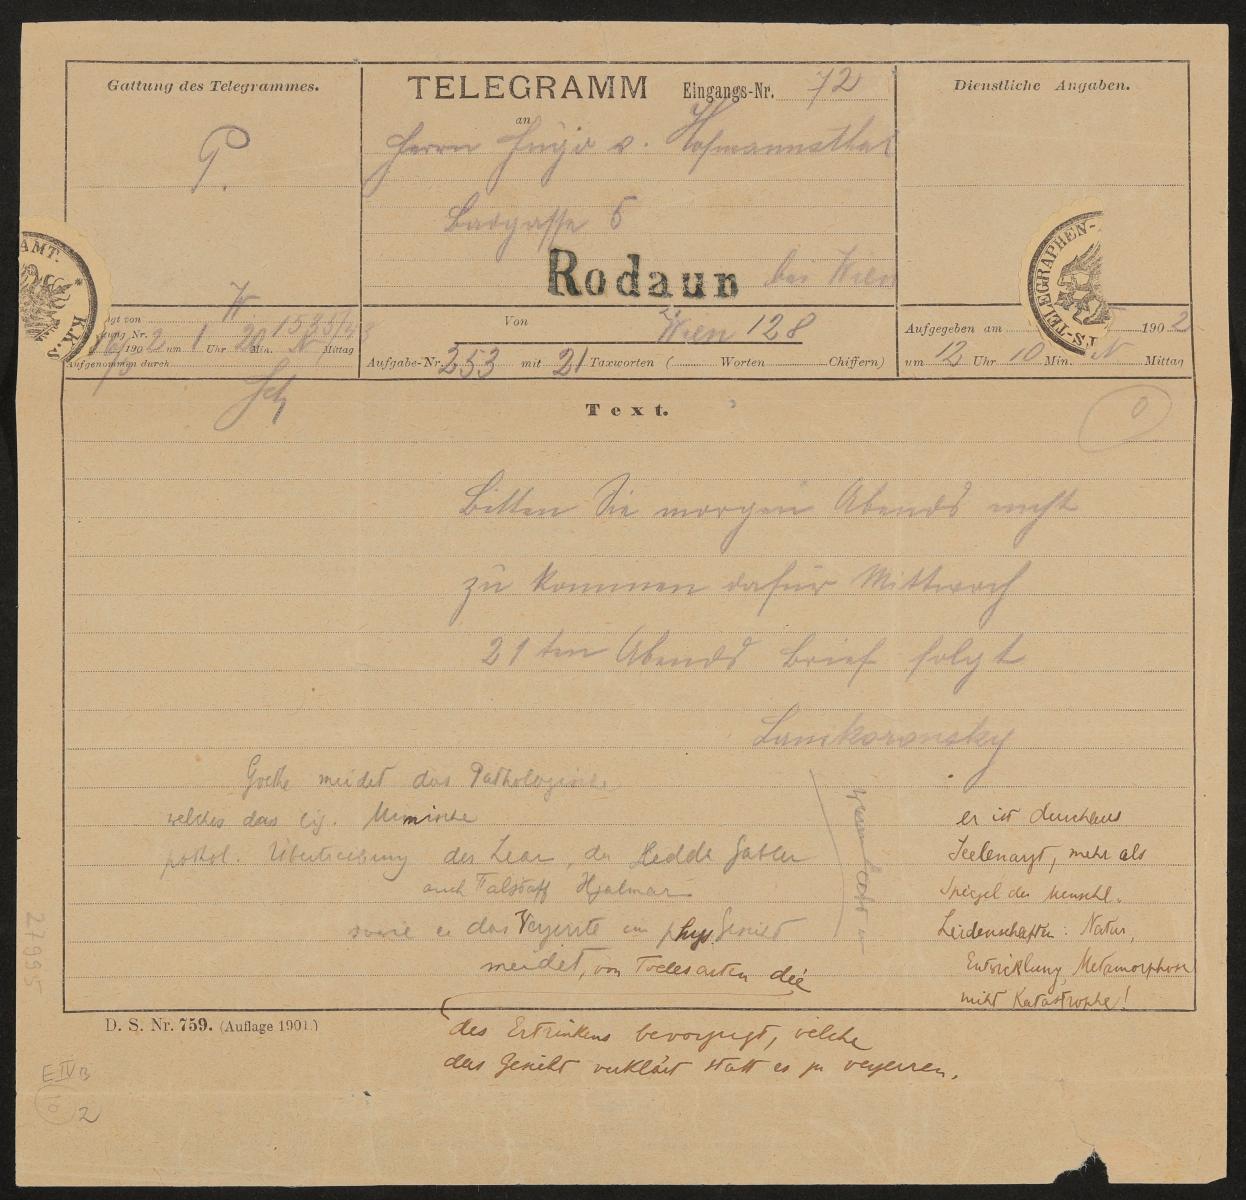 Gattung des Telegrammes.
P.
TELEGRAMM Eingangs-Nr. 72
an
Herrn Hugo v. Hofmannsthal
Badgasse 5
Rodaun bei Wien
Dienstliche Angaben.
AMT. * K.K.S
TELEGRAPHEN-
TS-
W.
190 2 um 1 Uhr 20 Min. N Mittag
Aufgenommen durch
Von Wien 128
Aufgabe-Nr. 253 mit 21 Taxworten ( Worten Chiffern)
Aufgegeben am 190 2
um 12 Uhr 10 Min. N Mittag
Text.
0
Bitten Sie morgen Abends nicht
zu kommen dafür Mittwoch
21ten Abends Brief folgt
Lanckoronsky
Goethe meidet das Pathologische
welches das eig. Mimische
pathol. Übertreibung des Lear, der Hedda Gabler
auch Falstaff Hjalmar
sowie er das Verzerrte im phys. Gesicht
meidet, von Todesarten die
des Ertrinkens bevorzugt, welche
das Gesicht verklärt statt es zu verzerren.
er ist durchaus
Seelenarzt, mehr als
Spiegel der menschl.
Leidenschaften: Natur,
Entwicklung, Metamorphose
nicht Katastrophe!
D. S. Nr. 759. (Auflage 1901.)
27995
E IV B
10
2